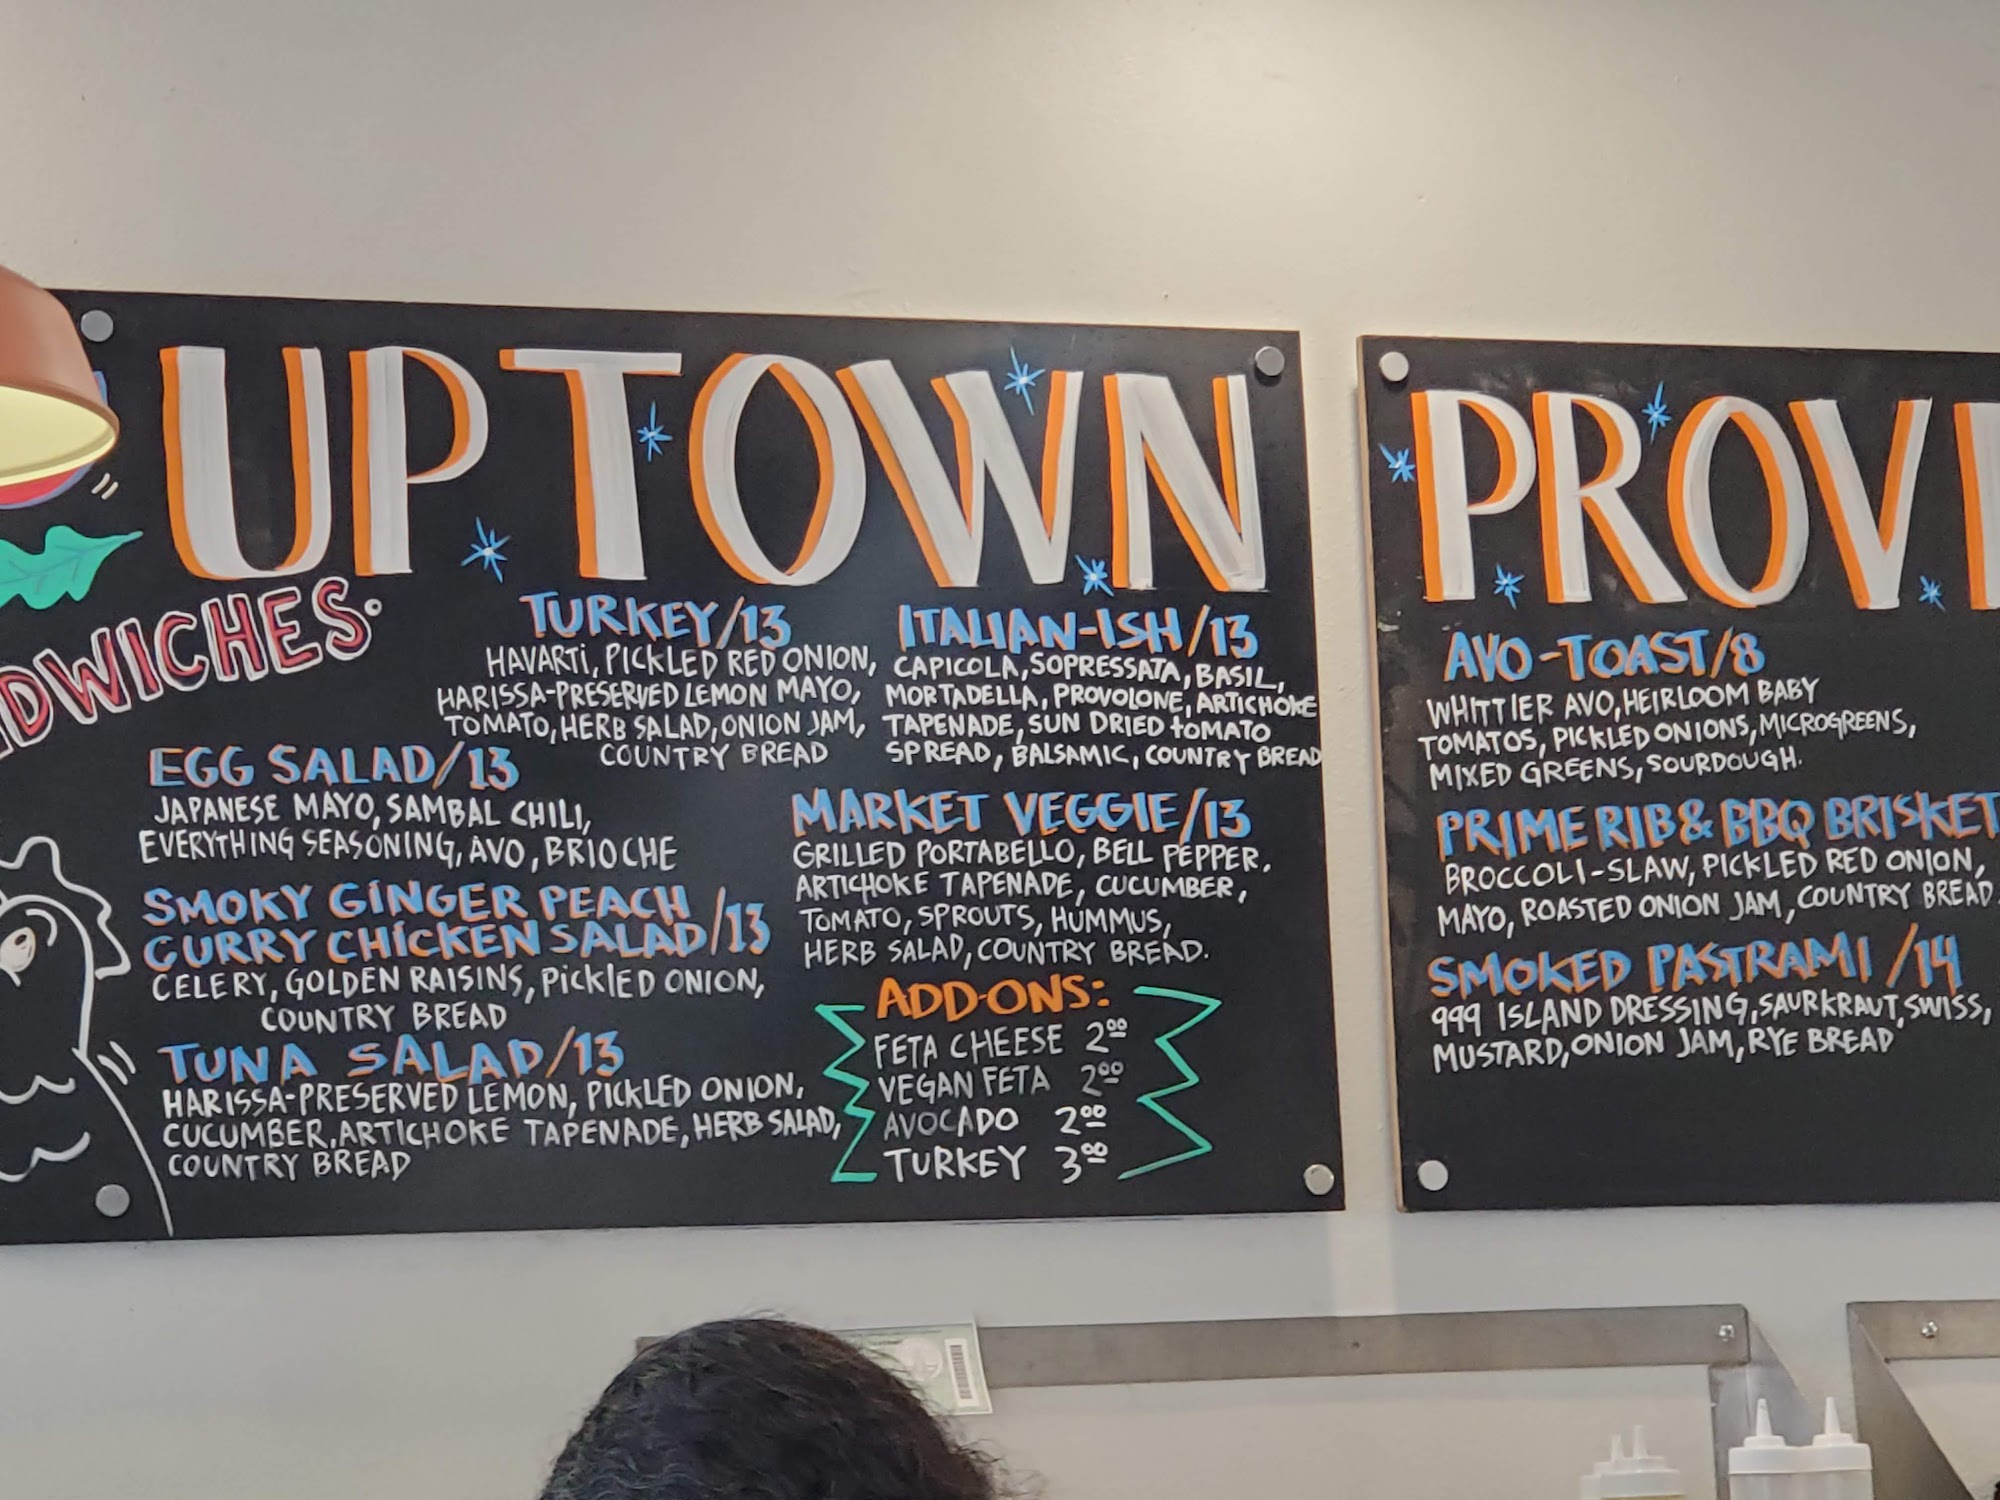 UPTOWN
DWICHES:
TURKEY/13
HAVARTI, PICKLED RED ONION,
HARISSA-PRESERVED LEMON MAYO,
TOMATO, HERB SALAD, ONION JAM,
COUNTRY BREAD
ITALIAN-ISH/13
CAPICOLA, SOPRESSATA, BASIL,
MORTADELLA, PROVOLONE, ARTICHOKE
TAPENADE, SUN DRIED TOMATO
SPREAD, BALSAMIC, COUNTRY BREAD
EGG SALAD/13
JAPANESE MAYO, SAMBAL CHILI,
EVERYTHING SEASONING, AVO, BRIOCHE
SMOKY GINGER PEACH
CURRY CHICKEN SALAD/13
CELERY, GOLDEN RAISINS, PICKLED ONION,
COUNTRY BREAD
TUNA SALAD/13
HARISSA-PRESERVED LEMON, PICKLED ONION,
CUCUMBER, ARTICHOKE TAPENADE, HERB SALAD,
COUNTRY BREAD
MARKET VEGGIE/13
GRILLED PORTABELLO, BELL PEPPER,
ARTICHOKE TAPENADE, CUCUMBER,
TOMATO, SPROUTS, HUMMUS,
HERB SALAD, COUNTRY BREAD.
ADD-ONS:
FETA CHEESE 2⁰⁰
VEGAN FETA 2⁰⁰
AVOCADO 2⁰⁰
TURKEY 3⁰⁰
PROVI
AVO-TOAST/8
WHITTIER AVO, HEIRLOOM BABY
TOMATOS, PICKLED ONIONS, MICROGREENS,
MIXED GREENS, SOURDOUGH.
PRIME RIB & BBQ BRISKET
BROCCOLI-SLAW, PICKLED RED ONION,
MAYO, ROASTED ONION JAM, COUNTRY BREAD.
SMOKED PASTRAMI /14
999 ISLAND DRESSING, SAURKRAUT, SWISS,
MUSTARD, ONION JAM, RYE BREAD